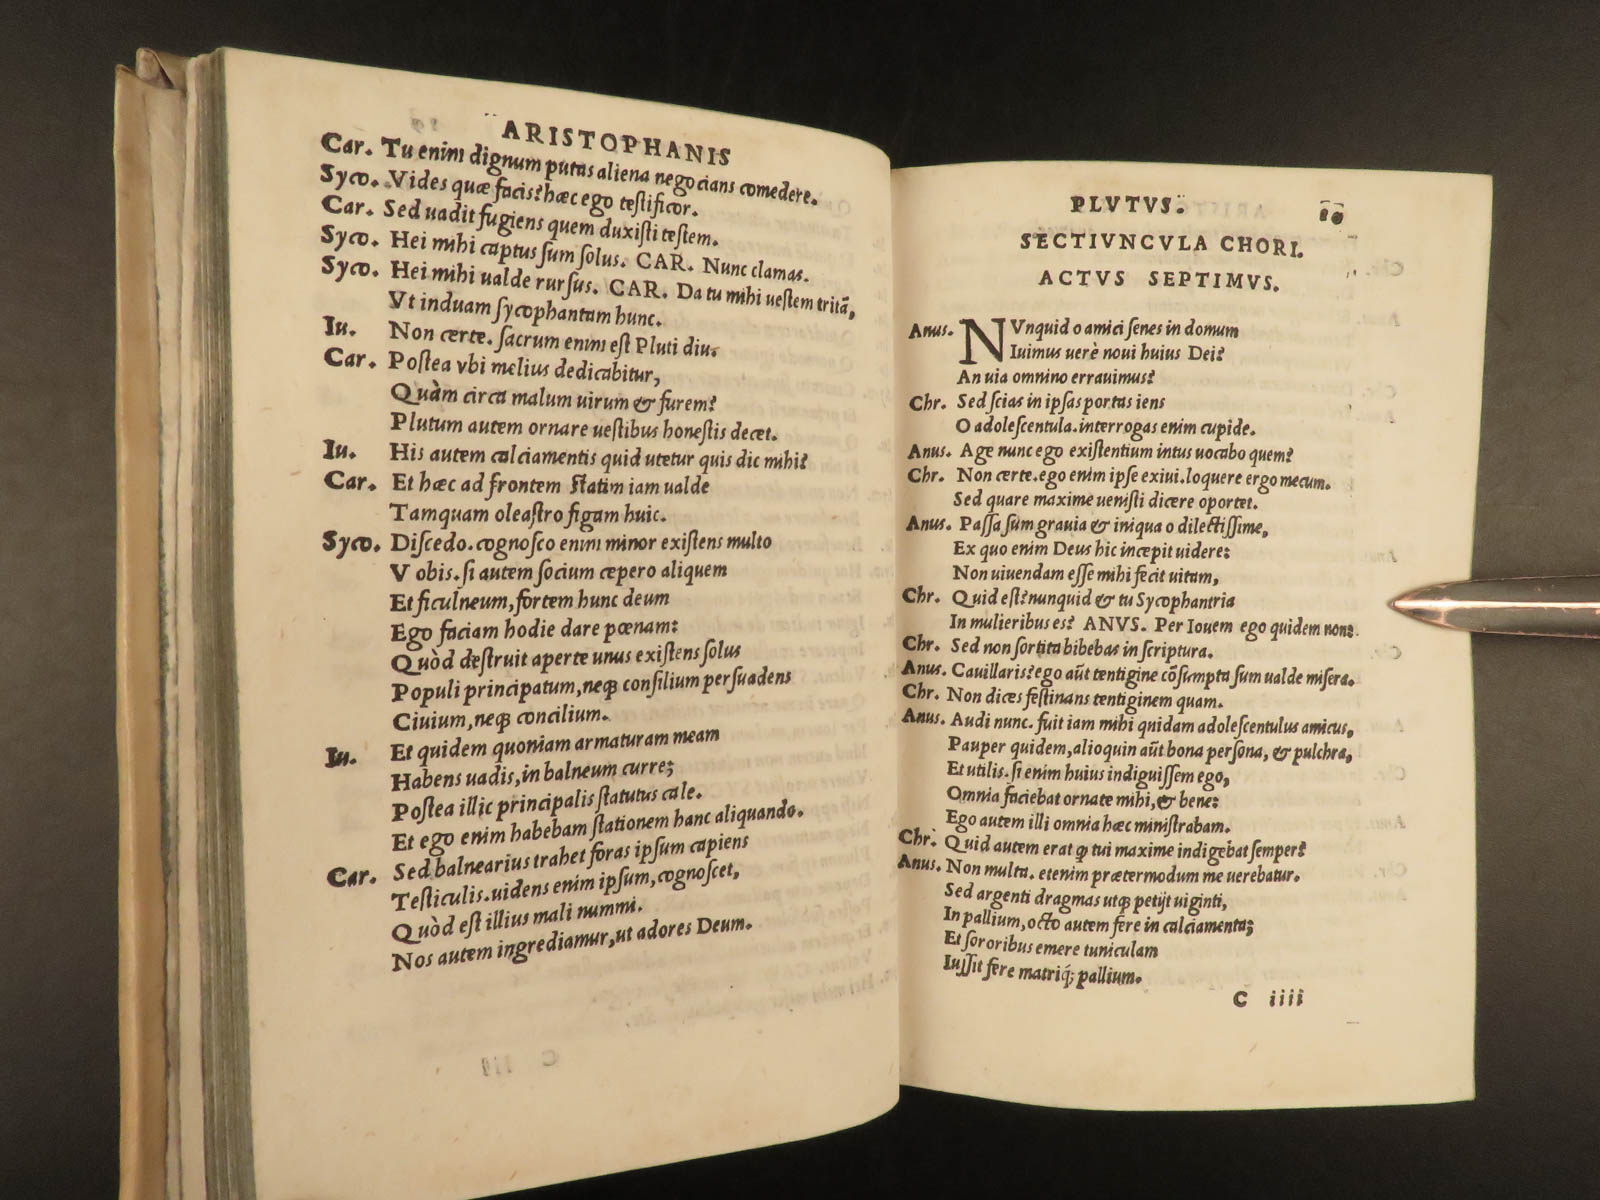 ARISTOPHANIS
Car. Tu enim dignum putas aliena negocians comedere.
Syco. Vides quæ facis? hæc ego testificor.
Car. Sed uadit fugiens quem duxisti testem.
Syco. Hei mihi captus sum solus. CAR. Nunc clamas.
Syco. Hei mihi ualde rursus. CAR. Da tu mihi uestem tritā,
Vt induam sycophantam hunc.
Iu. Non certe. sacrum enim est Pluti diu.
Car. Postea vbi melius dedicabitur,
Quàm circa malum uirum & furem?
Plutum autem ornare uestibus honestis decet.
Iu. His autem calciamentis quid utetur quis dic mihi?
Car. Et hæc ad frontem statim iam ualde
Tamquam oleastro figam huic.
Syco. Discedo. cognosco enim minor existens multo
Vobis. si autem socium cepero aliquem
Et ficulneum, fortem hunc deum
Ego faciam hodie dare pœnam:
Quòd destruit aperte unus existens solus
Populi principatum, neqꝫ consilium persuadens
Ciuium, neqꝫ concilium.
Iu. Et quidem quoniam armaturam meam
Habens uadis, in balneum curre;
Postea illic principalis statutus cale.
Et ego enim habebam stationem hanc aliquando.
Car. Sed balnearius trahet foras ipsum capiens
Testiculis. uidens enim ipsum, cognoscet,
Quòd est illius mali nummi.
Nos autem ingrediamur, ut adores Deum.
PLVTVS.
SECTIVNCVLA CHORI.
ACTVS SEPTIMVS.
Anus. NVnquid o amici senes in domum
Iuimus uerè noui huius Dei?
An uia omnino errauimus?
Chr. Sed scias in ipsas portas iens
O adolescentula. interrogas enim cupide.
Anus. Age nunc ego existentium intus uocabo quem?
Chr. Non certe. ego enim ipse exiui. loquere ergo mecum.
Sed quare maxime uenisti dicere oportet.
Anus. Passa sum grauia & iniqua o dilectissime,
Ex quo enim Deus hic incepit uidere:
Non uiuendam esse mihi fecit uitam,
Chr. Quid est? nunquid & tu Sycophantria
In mulieribus es? ANVS. Per Iouem ego quidem non:
Chr. Sed non sortita bibebas in scriptura.
Anus. Cauillaris? ego aūt tentigine cōsumpta sum ualde misera.
Chr. Non dices festinans tentiginem quam.
Anus. Audi nunc. fuit iam mihi quidam adolescentulus amicus,
Pauper quidem, alioquin aūt bona persona, & pulchra,
Et utilis. si enim huius indiguissem ego,
Omnia faciebat ornate mihi, & bene:
Ego autem illi omnia hæc ministrabam.
Chr. Quid autem erat ꝙ tui maxime indigebat semper?
Anus. Non multa. etenim prætermodum me uerebatur.
Sed argenti dragmas utqꝫ petijt uiginti,
In pallium, octo autem fere in calciamenta;
Et sororibus emere tuniculam
Iussit fere matriq́; pallium.
C iiii